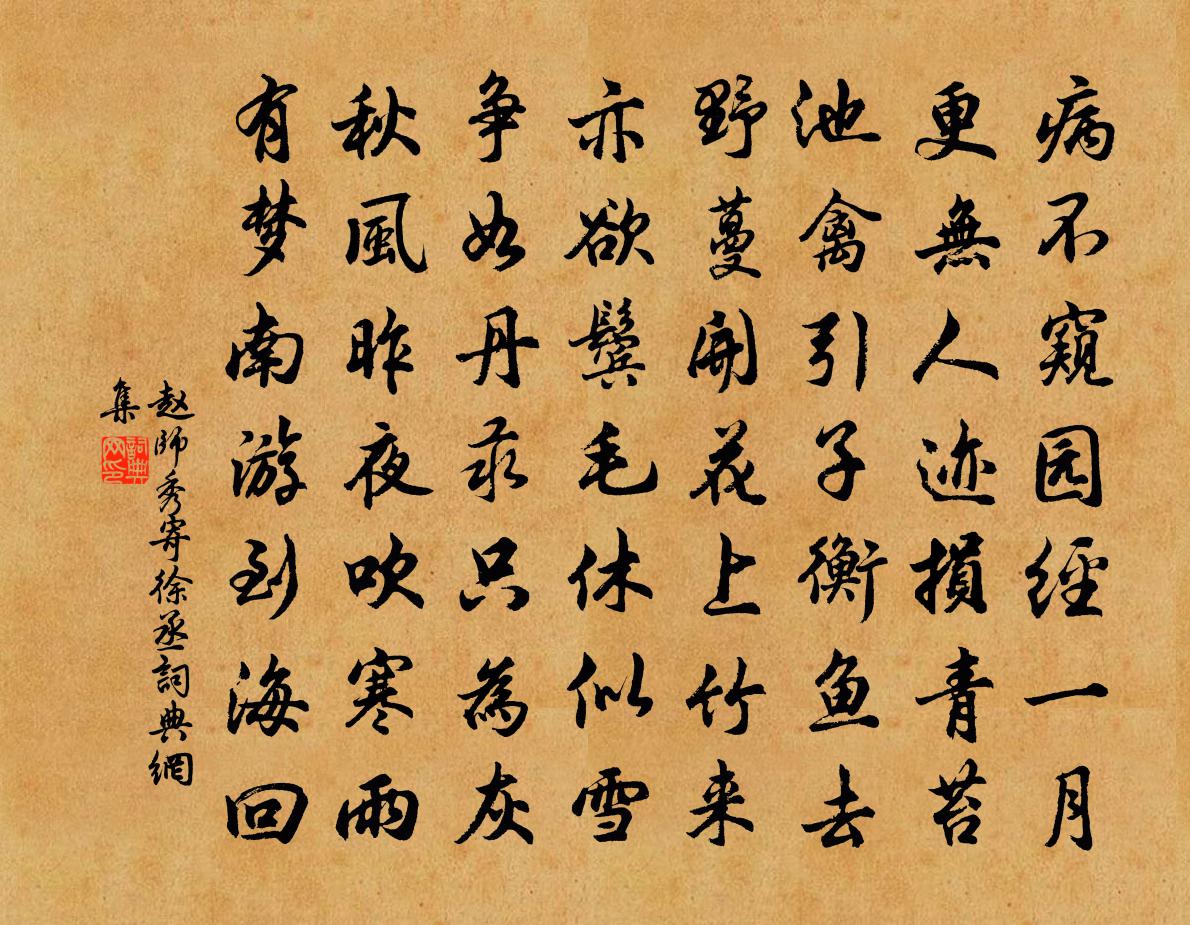 病不窺园經一月
更無人迹損青苔
池禽引子衡鱼去
野蔓開花上竹来
亦欲鬓毛休似雪
争如丹汞只為灰
秋風昨夜吹寒雨
有梦南游到海回
赵師秀寄徐丞詞典網
集